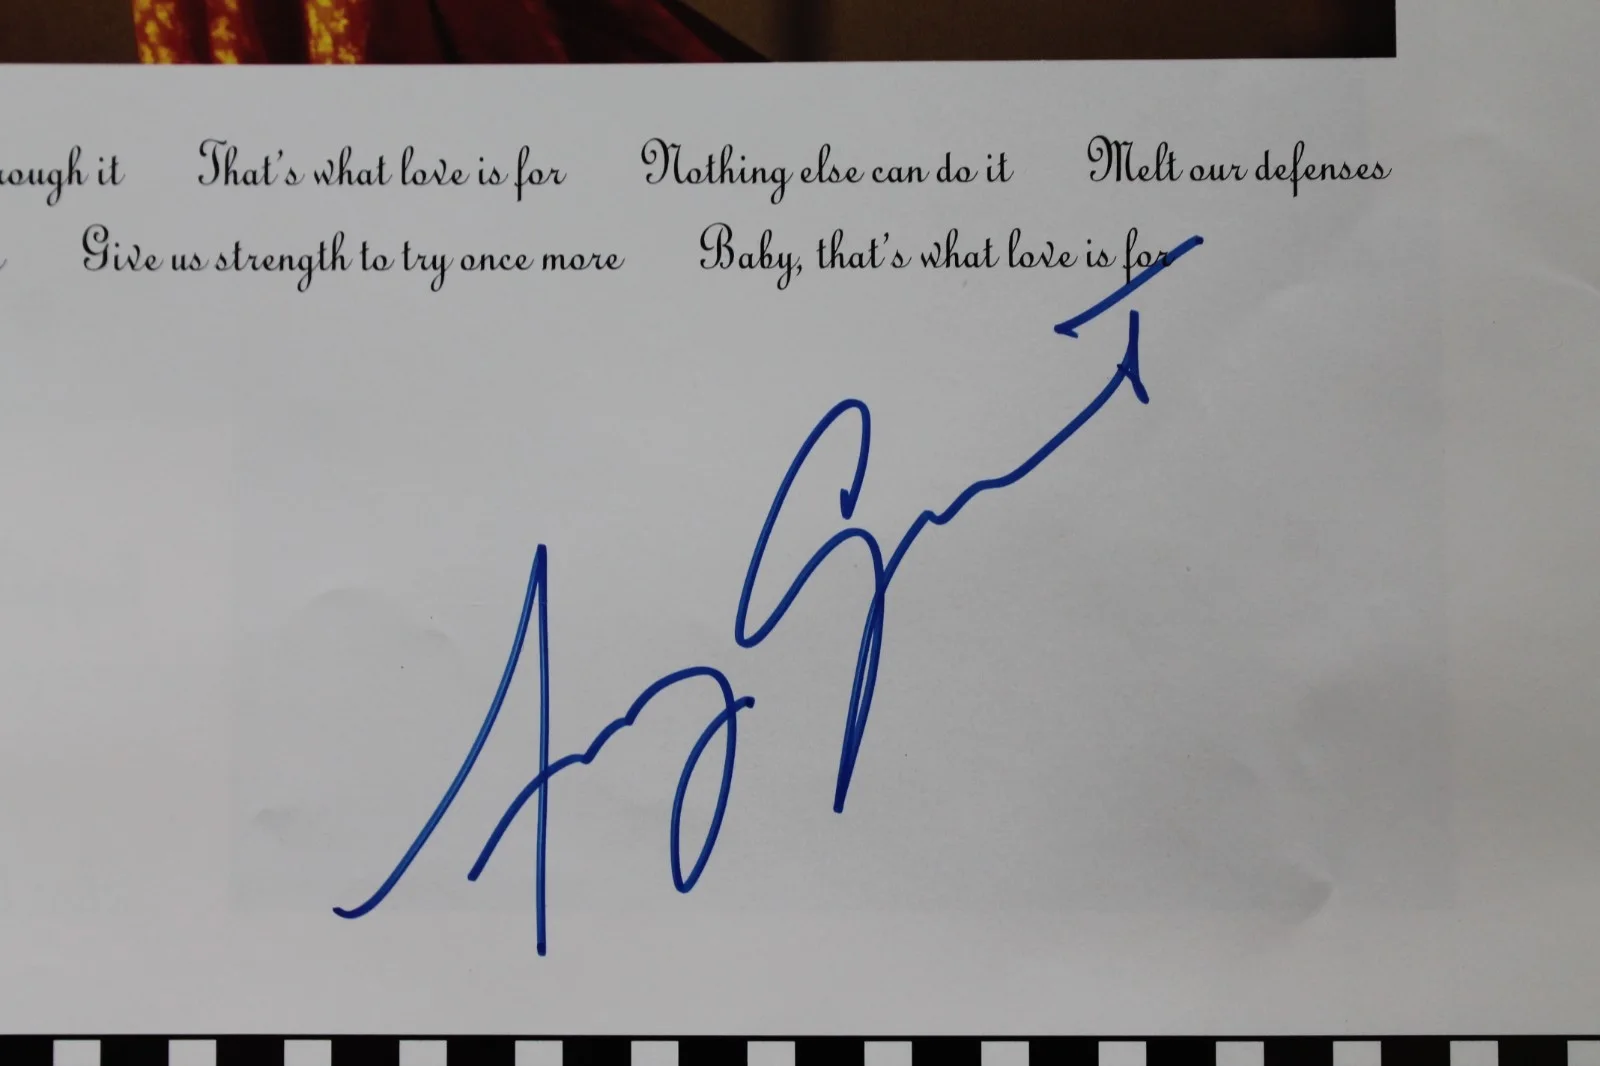 ough it That's what love is for Nothing else can do it Melt our defenses
Give us strength to try once more Baby, that's what love is for
Amy Grant